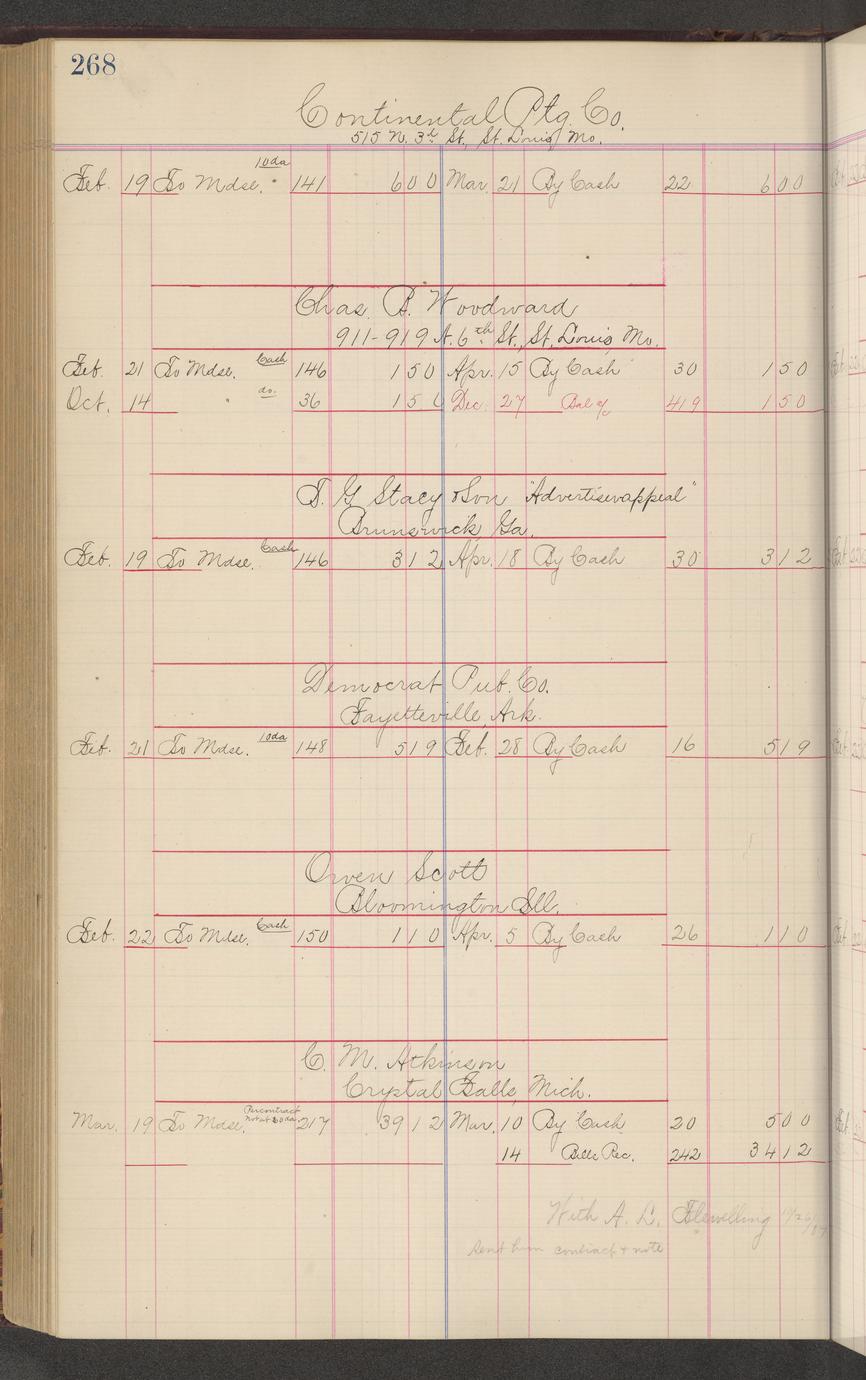 268
Continental Ptg. Co.
515 N. 3d St., St. Louis, Mo.
Feb. 19 To Mdse. 10da 141 600 Mar. 21 By Cash 22 600
Chas. B. Woodward
911-919 N. 6th St., St. Louis, Mo.
Feb. 21 To Mdse. Cash 146 150 Apr. 15 By Cash 30 150
Oct. 14 " do. 36 150 Dec. 27 Bal a/c 419 150
T. G Stacy & Son "Advertiser appeal"
Brunswick, Ga.
Feb. 19 To Mdse. Cash 146 312 Apr. 18 By Cash 30 312
Democrat Pub. Co.
Fayetteville, Ark.
Feb. 21 To Mdse. 10da 148 519 Feb. 28 By Cash 16 519
Owen Scott
Bloomington Ill.
Feb. 22 To Mdse. Cash 150 110 Apr. 5 By Cash 26 110
C. M. Atkinson
Crystal Falls, Mich.
Mar. 19 To Mdse. Per contract 217 3912 Mar. 10 By Cash 20 500
14 Bills Rec. 242 3412
With A. L. Flewelling
sent him contract + note